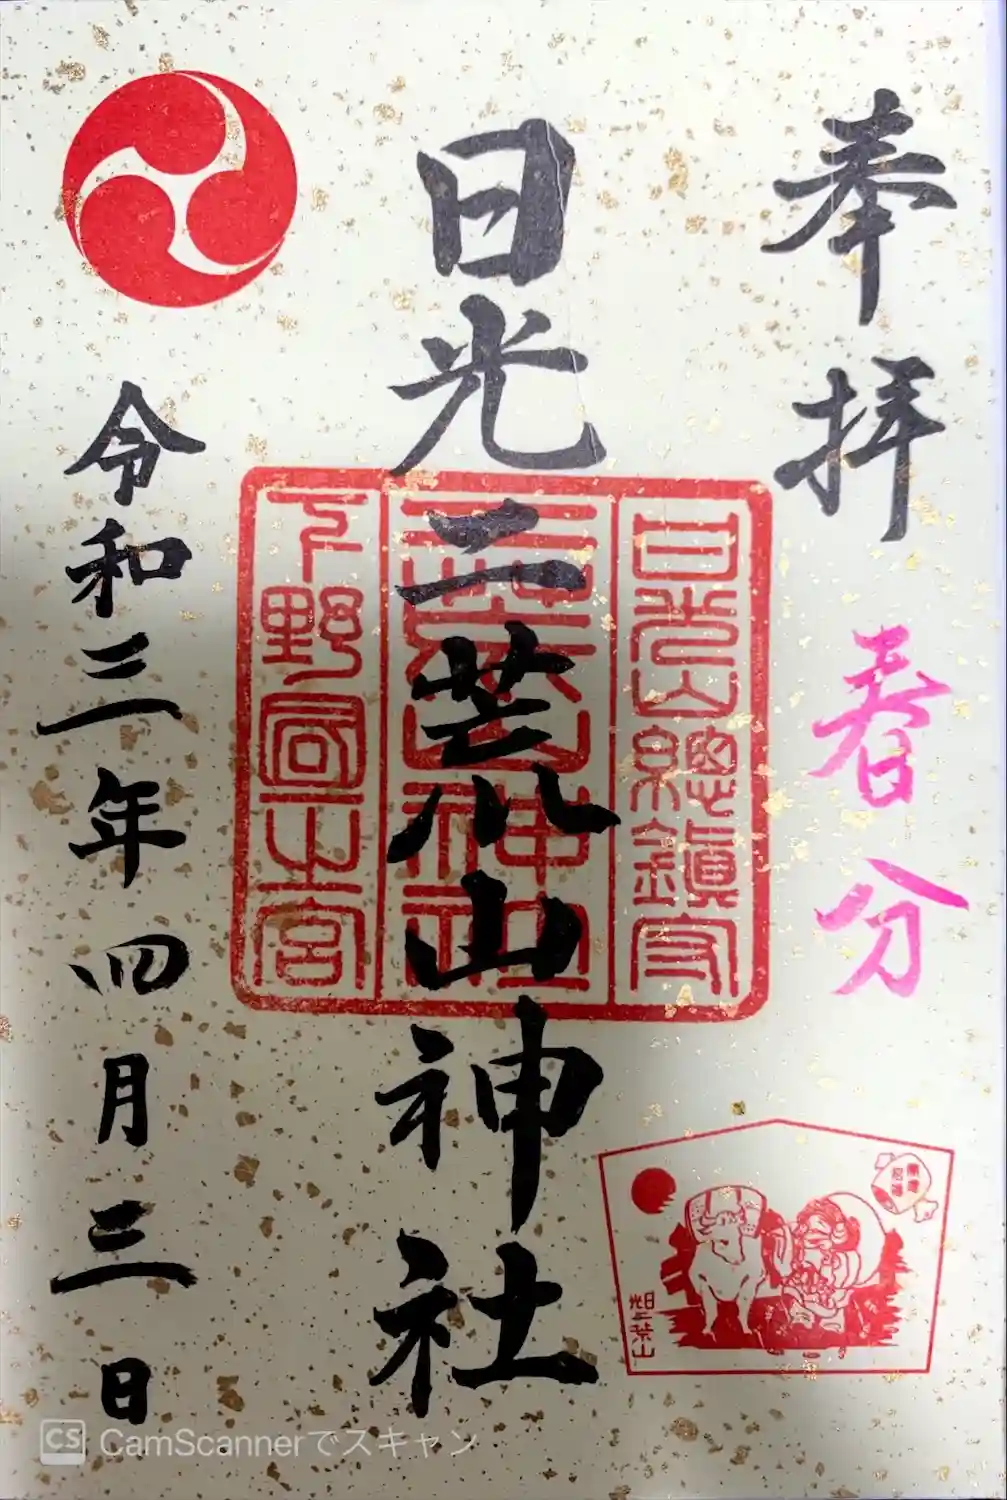 奉拝
春分
日光二荒山神社
日光山總鎮守
二荒山神社
下野國一之宮
日光二荒山
令和三年四月三日
CamScannerでスキャン